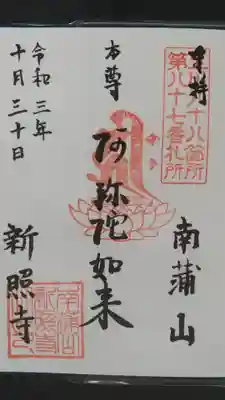 奉拝
八十八箇所
第八十七番札所
南蒲山
本尊
阿弥陀如来
新照寺
令和三年
十月三十日